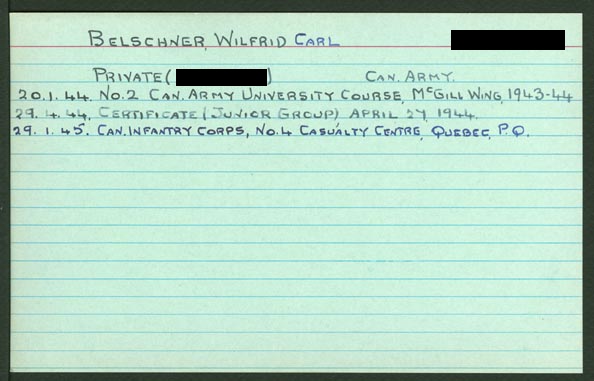 BELSCHNER, WILFRID CARL
PRIVATE ( ) CAN. ARMY.
20.1.44. NO.2 CAN. ARMY UNIVERSITY COURSE, McGILL WING, 1943-44
29.4.44. CERTIFICATE (JUNIOR GROUP) APRIL 27, 1944.
29.1.45. CAN. INFANTRY CORPS, NO.4 CASUALTY CENTRE, QUEBEC, P.Q.